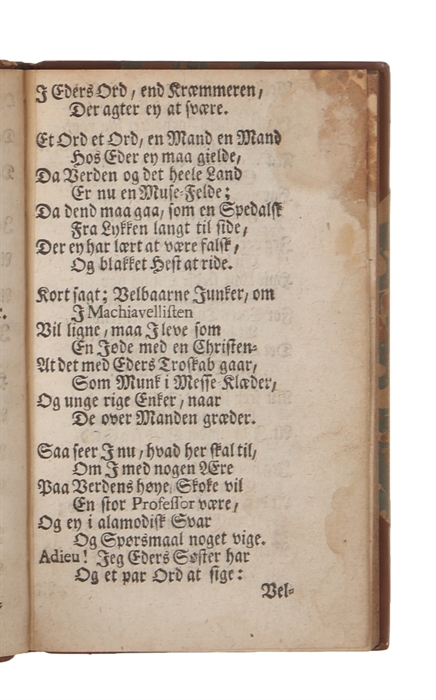 J Eders Ord / end Kræmmeren /
Der agter ey at svære.
Et Ord et Ord, en Mand en Mand
Hos Eder ey maa gielde /
Da Verden og det heele Land
Er nu en Muse-Felde;
Da dend maa gaa / som en Spedalsk
Fra Lykken langt til side /
Der ey har lært at være falsk /
Og blakket Hest at ride.
Kort sagt; Velbaarne Junker / om
J Machiavellisten
Vil ligne / maa J leve som
En Jøde med en Christen-
At det med Eders Troskab gaar /
Som Munk i Messe Klæder /
Og unge rige Enker / naar
De over Manden græder.
Saa seer J nu / hvad her skal til /
Om J med nogen Ære
Paa Verdens høye Skole vil
En stor Professor være /
Og ey i alamodisk Svar
Og Spørsmaal noget vige.
Adieu! Jeg Eders Søster har
Og et par Ord at sige:
Vel-